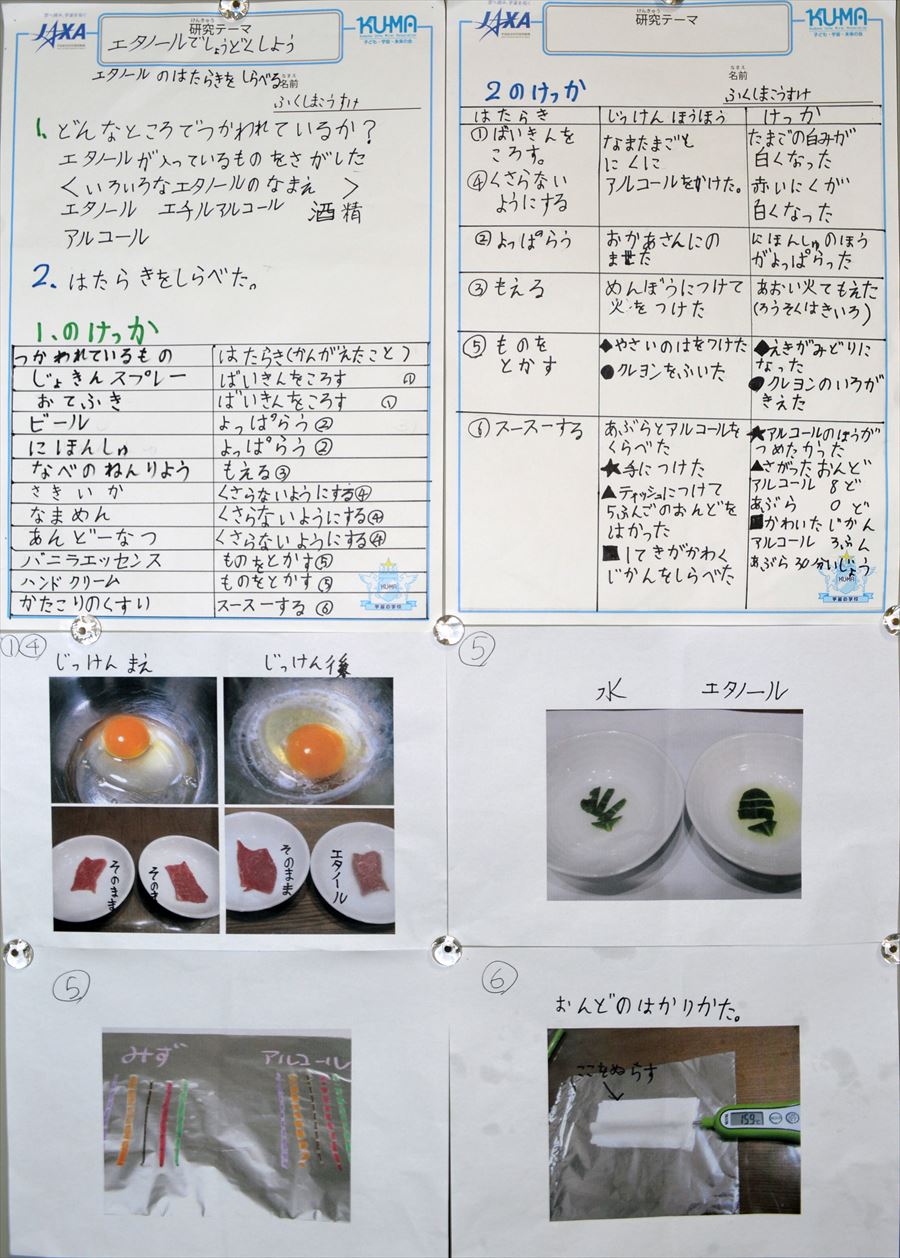 JAXA
けんきゅう
研究テーマ
エタノールでしょうどくしよう
KUMA
子ども・宇宙・未来の会
エタノールのはたらきをしらべる
なまえ
名前
ふくしまこうすけ
1. どんなところでつかわれているか？
エタノールが入っているものをさがした
＜いろいろなエタノールのなまえ＞
エタノール エチルアルコール 酒精
アルコール
2. はたらきをしらべた。
1、のけっか
つかわれているもの はたらき(かんがえたこと)
じょきんスプレー ばいきんをころす ①
おてふき ばいきんをころす ①
ビール よっぱらう②
にほんしゅ よっぱらう②
なべのねんりよう もえる③
さきいか くさらないようにする④
なまめん くさらないようにする④
あんどーなつ くさらないようにする④
バニラエッセンス ものをとかす⑤
ハンドクリーム ものをとかす⑤
かたこりのくすり スースーする ⑥
KUMA
宇宙の学校
JAXA
けんきゅう
研究テーマ
KUMA
子ども・宇宙・未来の会
なまえ
名前
2のけっか
ふくしまこうすけ
はたらき じっけんほうほう けっか
①ばいきんを
ころす。
④くさらない
ようにする
なまたまごと
にくに
アルコールをかけた。
たまごの白みが
白くなった
赤いにくが
白くなった
②よっぱらう
おかあさんにの
ませた
にほんしゅのほう
がよっぱらった
③もえる
めんぼうにつけて
火をつけた
あおい火でもえた
(ろうそくはきいろ)
⑤ものを
とかす
◆やさいのはをつけた
●クレヨンをふいた
◆えきがみどりに
なった
●クレヨンのいろが
きえた
⑥スースーする
あぶらとアルコールを
くらべた
★手につけた
▲ティッシュにつけて
5ふんごのおんどを
はかった
■1てきがかわく
じかんをしらべた
★アルコールのほうが
つめたかった
▲さがったおんど
アルコール 8ど
あぶら 0ど
■かわいたじかん
アルコール 3ふん
あぶら30分いじょう
KUMA
宇宙の学校
①④
じっけんまえ じっけん後
そのまま
そのま
そのまま
エタノール
⑤
水 エタノール
⑤
みず アルコール
⑥
おんどのはかりかた。
ここをぬらす
15.9℃